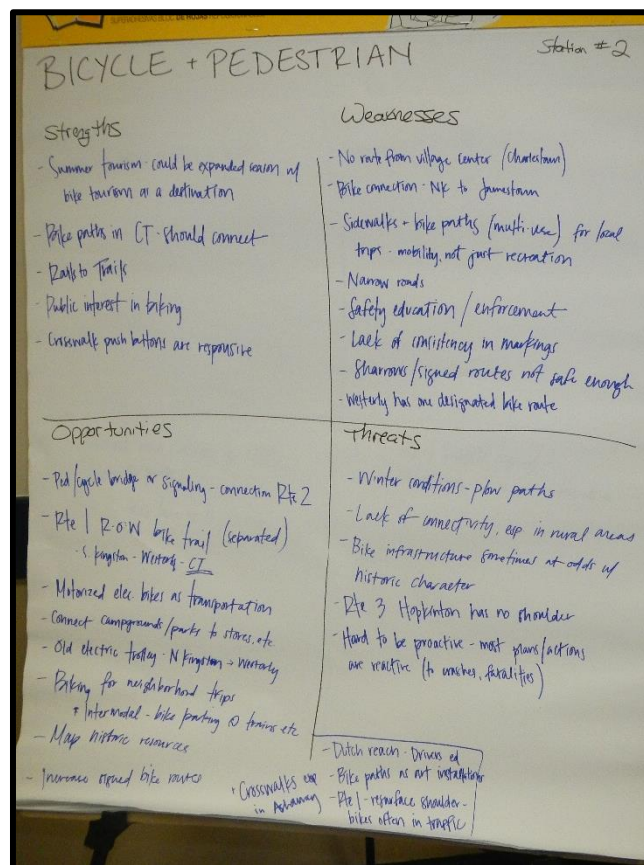 BICYCLE + PEDESTRIAN
Station #2
Strengths
- Summer tourism - could be expanded season w/
bike tourism as a destination
- Bike paths in CT - should connect
- Rails to Trails
- Public interest in biking
- Crosswalk push buttons are responsive
Weaknesses
- No route from village center (Charlestown)
- Bike connection - NK to Jamestown
- Sidewalks + bike paths (multi-use) for local
trips - mobility, not just recreation
- Narrow roads
- Safety education / enforcement
- Lack of consistency in markings
- Sharrows/signed routes not safe enough
- Westerly has one designated bike route
Opportunities
- Ped/cycle bridge or signaling - connection Rte 2
- Rte 1 R.O.W bike trail (separated)
- S. Kingston - Westerly - CT
- Motorized elec. bikes as transportation
- Connect campgrounds/parks to stores, etc
- Old electric trolley - N Kingston → Westerly
- Biking for neighborhood trips
+ Intermodal - bike parking @ trains etc
- Map historic resources
- Increase signed bike routes
+ Crosswalks esp
in Ashaway
Threats
- Winter conditions - plow paths
- Lack of connectivity, esp in rural areas
- Bike infrastructure sometimes at odds w/
historic character
- Rte 3 Hopkinton has no shoulder
- Hard to be proactive - most plans/actions
are reactive (to crashes, fatalities)
- Dutch reach - Drivers ed
- Bike paths as art installations
- Rte 1 - resurface shoulder -
bikes often in traffic